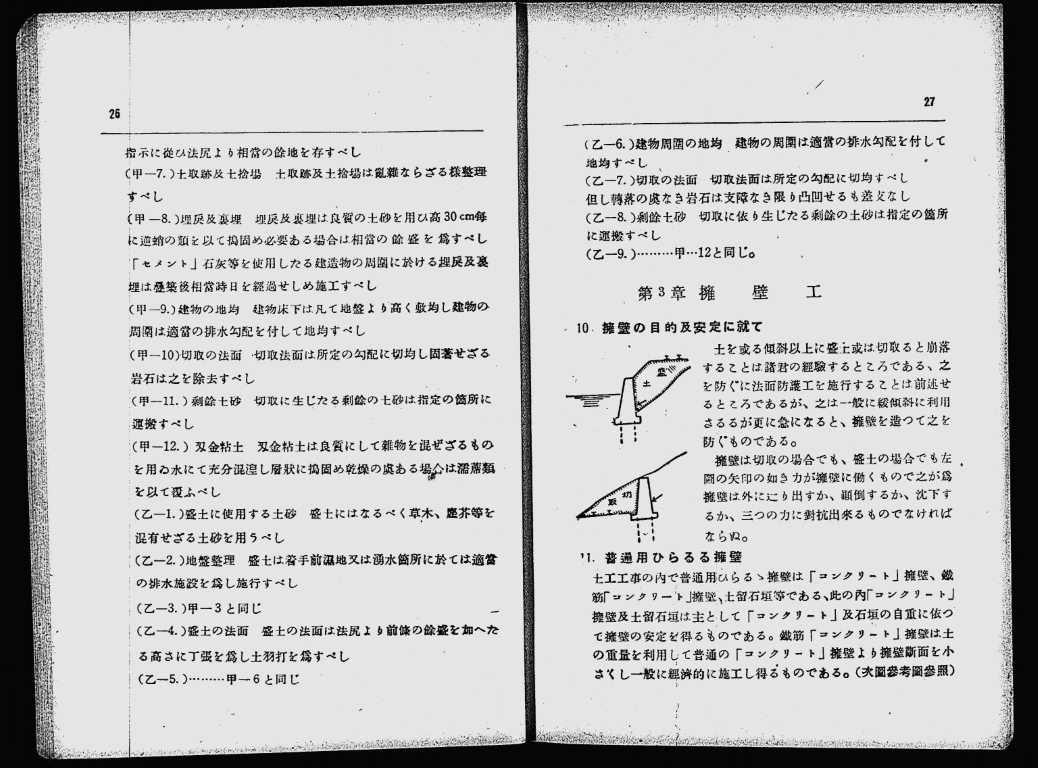 26
指示に從ひ法尻より相當の餘地を存すべし
(甲—7.)土取跡及土捨場　土取跡及土捨場は亂雜ならざる樣整理
すべし
(甲—8.)埋戾及裏埋　埋戾及裏埋は良質の土砂を用ひ高30cm每
に道蛸の類を以て搗固め必要ある場合は相當の餘盛を爲すべし
「セメント」石灰等を使用したる建造物の周圍に於ける埋戾及裏
埋は疊築後相當時日を經過せしめ施工すべし
(甲—9.)建物の地均　建物床下は凡て地盤より高く敷均し建物の
周圍は適當の排水勾配を付して地均すべし
(甲—10)切取の法面　切取法面は所定の勾配に切均し固著せざる
岩石は之を除去すべし
(甲—11.)剩餘土砂　切取に生じたる剩餘の土砂は指定の箇所に
運搬すべし
(甲—12.)刄金粘土　刄金粘土は良質にして雜物を混ぜざるもの
を用ゐ水にて充分混湟し層狀に搗固め乾燥の虞ある場合は濡蓆類
を以て覆ふべし
(乙—1.)盛土に使用する土砂　盛土にはなるべく草木、塵芥等を
混有せざる土砂を用うべし
(乙—2.)地盤整理　盛土は着手前濕地又は湧水箇所に於ては適當
の排水施設を爲し施行すべし
(乙—3.)甲—3と同じ
(乙—4.)盛土の法面　盛土の法面は法尻より前條の餘盛を加へた
る高さに丁張を爲し土羽打を爲すべし
(乙—5.)………甲—6と同じ
27
(乙—6.)建物周圍の地均　建物の周圍は適當の排水勾配を付して
地均すべし
(乙—7.)切取の法面　切取法面は所定の勾配に切均すべし
但し轉落の虞なき岩石は支障なき限り凸凹せるも差支なし
(乙—8.)剩餘土砂　切取に依り生じたる剩餘の土砂は指定の箇所
に運搬すべし
(乙—9.)………甲…12と同じ。
第3章擁　壁　工
10. 擁壁の目的及安定に就て
土を或る傾斜以上に盛土或は切取ると崩落
することは諸君の經驗するところである、之
を防ぐに法面防護工を施行することは前述せ
るところであるが、之は一般に緩傾斜に利用
さるるが更に急になると、擁壁を造つて之を
防ぐものである。
擁壁は切取の場合でも、盛土の場合でも左
圖の矢印の如き力が擁壁に働くもので之が爲
擁壁は外に辷り出すか、顚倒するか、沈下す
るか、三つの力に對抗出來るものでなければ
ならぬ。
盛
土
取切
11. 普通用ひらるる擁壁
土工工事の內で普通用ひらるゝ擁壁は「コンクリート」擁壁、鐵
筋「コンクリート」擁壁、土留石垣等である、此の內「コンクリート」
擁壁及土留石垣は主として「コンクリート」及石垣の自重に依つ
て擁壁の安定を得るものである。鐵筋「コンクリート」擁壁は土
の重量を利用して普通の「コンクリート」擁壁より擁壁斷面を小
さくし一般に經濟的に施工し得るものである。(次圖參考圖參照)